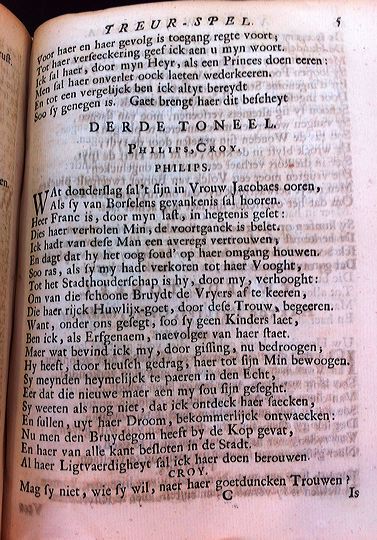 TREUR-SPEL. 5
Voor haer en haer gevolg is toegang regte voort;
Tot haer verseeckering geef ick aen u myn woort.
Ick sal haer, door myn Heyr, als een Princes doen eeren:
Men sal haer onverlet oock laeten wederkeeren.
En tot een vergelijck ben ick altyt bereydt
Soo sy genegen is. Gaet brengt haer dit bescheyt
DERDE TONEEL.
PHILIPS, CROY.
PHILIPS.
WAt donderslag sal't sijn in Vrouw Jacobaes ooren,
Als sy van Borselens gevankenis sal hooren.
Heer Franc is, door myn last, in hegtenis geset:
Dies haer verholen Min, de voortganck is belet.
Ick hadt van dese Man een averegs vertrouwen,
En dagt dat hy het oog soud' op haer omgang houwen.
Soo ras, als sy my hadt verkoren tot haer Vooght,
Tot het Stadthouderschap is hy, door my, verhooght:
Om van die schoone Bruydt de Vryers af te keeren,
Die haer rijck Huwlijx-goet, door dese Trouw, begeeren.
Want, onder ons gesegt, soo sy geen Kinders laet,
Ben ick, als Erfgenaem, naevolger van haer staet.
Maer wat bevind ick my, door gissing, nu bedroogen;
Hy heeft, door heusch gedrag, haer tot sijn Min bewoogen.
Sy meynden heymelijck te paeren in den Echt,
Eer dat die nieuwe maer aen my sou sijn geseght.
Sy weeten als nog niet, dat ick ontdeck haer saecken,
En sullen, uyt haer Droom, bekommerlijck ontwaecken:
Nu men den Bruydegom heeft by de Kop gevat,
En haer van alle kant besloten in de Stadt.
Al haer Ligtvaerdigheyt sal ick haer doen berouwen.
CROY.
Mag sy niet, wie sy wil, naer haer goetduncken Trouwen?
C Is